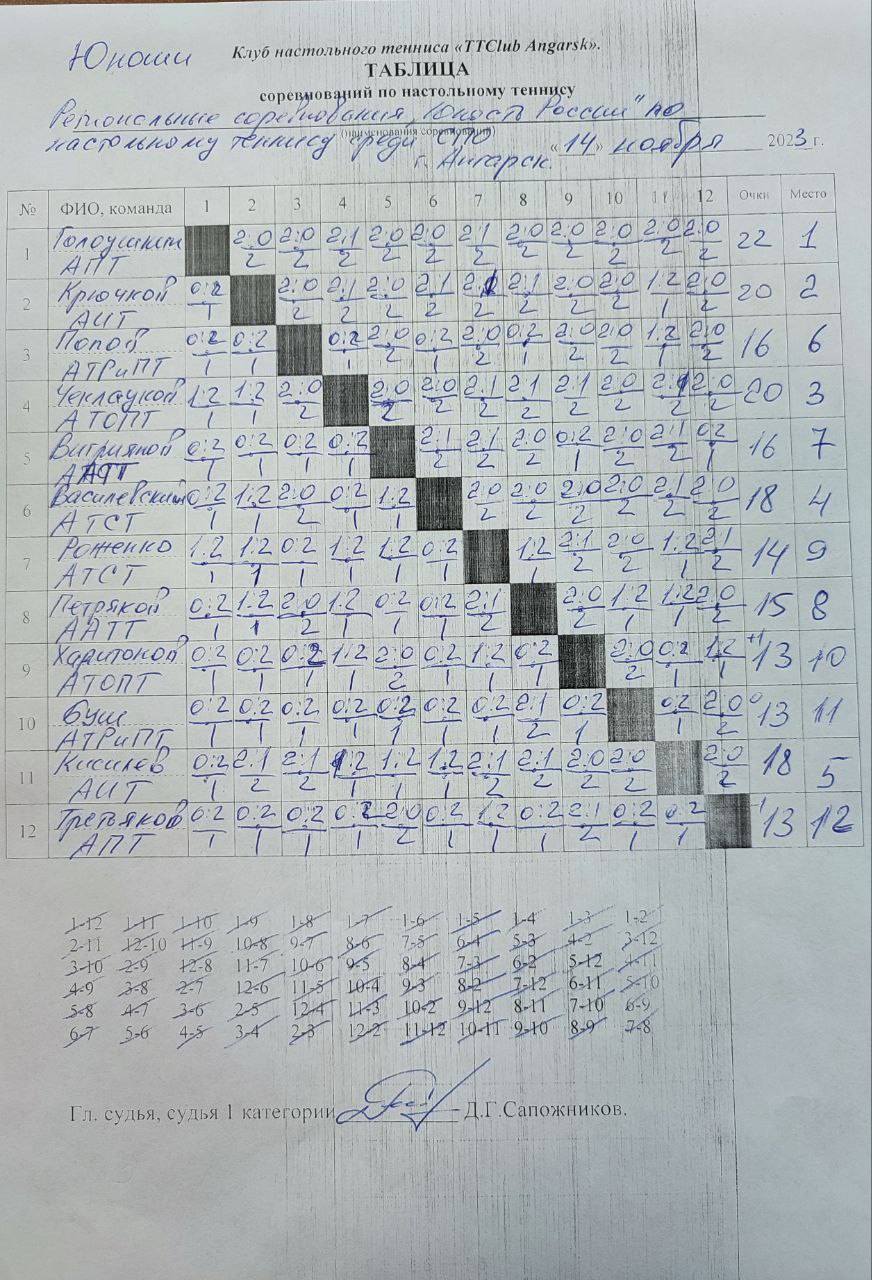 Юноши
Клуб настольного тенниса «TTClub Angarsk».
ТАБЛИЦА
соревнований по настольному теннису
Региональные соревнования „Юность России" по
(наименования соревнований)
настольному теннису среди СПО
«14» ноября 2023 г.
г. Ангарск.
№ ФИО, команда 1 2 3 4 5 6 7 8 9 10 11 12 Очки Место
1 2:0 2:0 2:1 2:0 2:0 2:1 2:0 2:0 2:0 2:0 2:0 22 1
АПТ 2 2 2 2 2 2 2 2 2 2 2
2 Крючков 0:2 2:0 2:1 2:0 2:1 2:1 2:1 2:0 2:0 1:2 2:0 20 2
АИТ 1 2 2 2 2 2 2 2 2 1 2
3 Попов 0:2 0:2 0:2 2:0 0:2 2:0 0:2 2:0 2:0 1:2 2:0 16 6
АТРиПТ 1 1 1 2 1 2 1 2 2 1 2
4 1:2 1:2 2:0 2:0 2:0 2:1 2:1 2:1 2:0 2:1 2:0 20 3
АТОПТ 1 1 2 2 2 2 2 2 2 2 2
5 0:2 0:2 0:2 0:2 2:1 2:1 2:0 0:2 2:0 2:1 0:2 16 7
1 1 1 1 2 2 2 1 2 2 1
6 Василевский 0:2 1:2 2:0 0:2 1:2 2:0 2:0 2:0 2:0 2:1 2:0 18 4
АТСТ 1 1 2 1 1 2 2 2 2 2 2
7 Роженко 1:2 1:2 0:2 1:2 1:2 0:2 1:2 2:1 2:0 1:2 2:1 14 9
АТСТ 1 1 1 1 1 1 1 2 2 1 2
8 Петряков 0:2 1:2 2:0 1:2 0:2 0:2 2:1 2:0 1:2 1:2 2:0 15 8
ААТТ 1 1 2 1 1 1 2 2 1 1 2
9 Харитонов 0:2 0:2 0:2 1:2 2:0 0:2 1:2 0:2 2:0 0:2 1:2 +1 13 10
АТОПТ 1 1 1 1 2 1 1 1 2 1 1
10 Буш 0:2 0:2 0:2 0:2 0:2 0:2 0:2 2:1 0:2 0:2 2:0 0 13 11
АТРиПТ 1 1 1 1 1 1 1 2 1 1 2
11 Киселёв 0:2 2:1 2:1 1:2 1:2 1:2 2:1 2:1 2:0 2:0 2:0 18 5
АИТ 1 2 2 1 1 1 2 2 2 2 2
12 Третьяков 0:2 0:2 0:2 0:2 2:0 0:2 1:2 0:2 2:1 0:2 0:2 -1 13 12
АПТ 1 1 1 1 2 1 1 1 2 1 1
1-12 1-11 1-10 1-9 1-8 1-7 1-6 1-5 1-4 1-3 1-2
2-11 12-10 11-9 10-8 9-7 8-6 7-5 6-4 5-3 4-2 3-12
3-10 2-9 12-8 11-7 10-6 9-5 8-4 7-3 6-2 5-12 4-11
4-9 3-8 2-7 12-6 11-5 10-4 9-3 8-2 7-12 6-11 5-10
5-8 4-7 3-6 2-5 12-4 11-3 10-2 9-12 8-11 7-10 6-9
6-7 5-6 4-5 3-4 2-3 12-2 11-12 10-11 9-10 8-9 7-8
Гл. судья, судья 1 категории Д.Г.Сапожников.